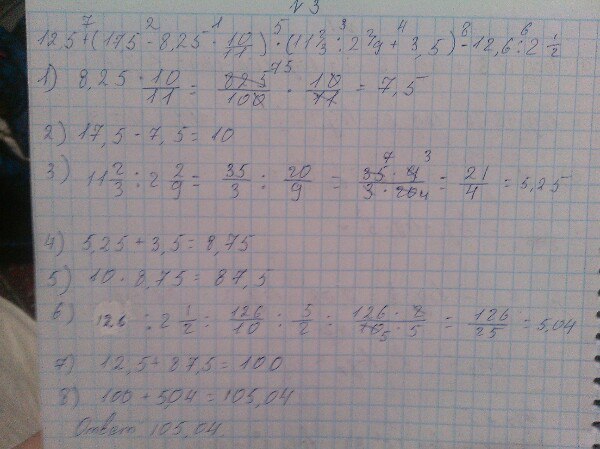 №3
12,5 + (17,5 - 8,25 · 10/11) · (11 2/3 : 2 2/9 + 3,5) - 12,6 : 2 1/2
7 2 1 5 3 4 8 6
1) 8,25 · 10/11 = 825/100 · 10/11 = 7,5
2) 17,5 - 7,5 = 10
3) 11 2/3 : 2 2/9 = 35/3 : 20/9 = 35 · 9/3 · 20 = 21/4 = 5,25
4) 5,25 + 3,5 = 8,75
5) 10 · 8,75 = 87,5
6) 12,6 : 2 1/2 = 126/10 : 5/2 = 126 · 2/10 · 5 = 126/25 = 5,04
7) 12,5 + 87,5 = 100
8) 100 + 5,04 = 105,04
Ответ 105,04